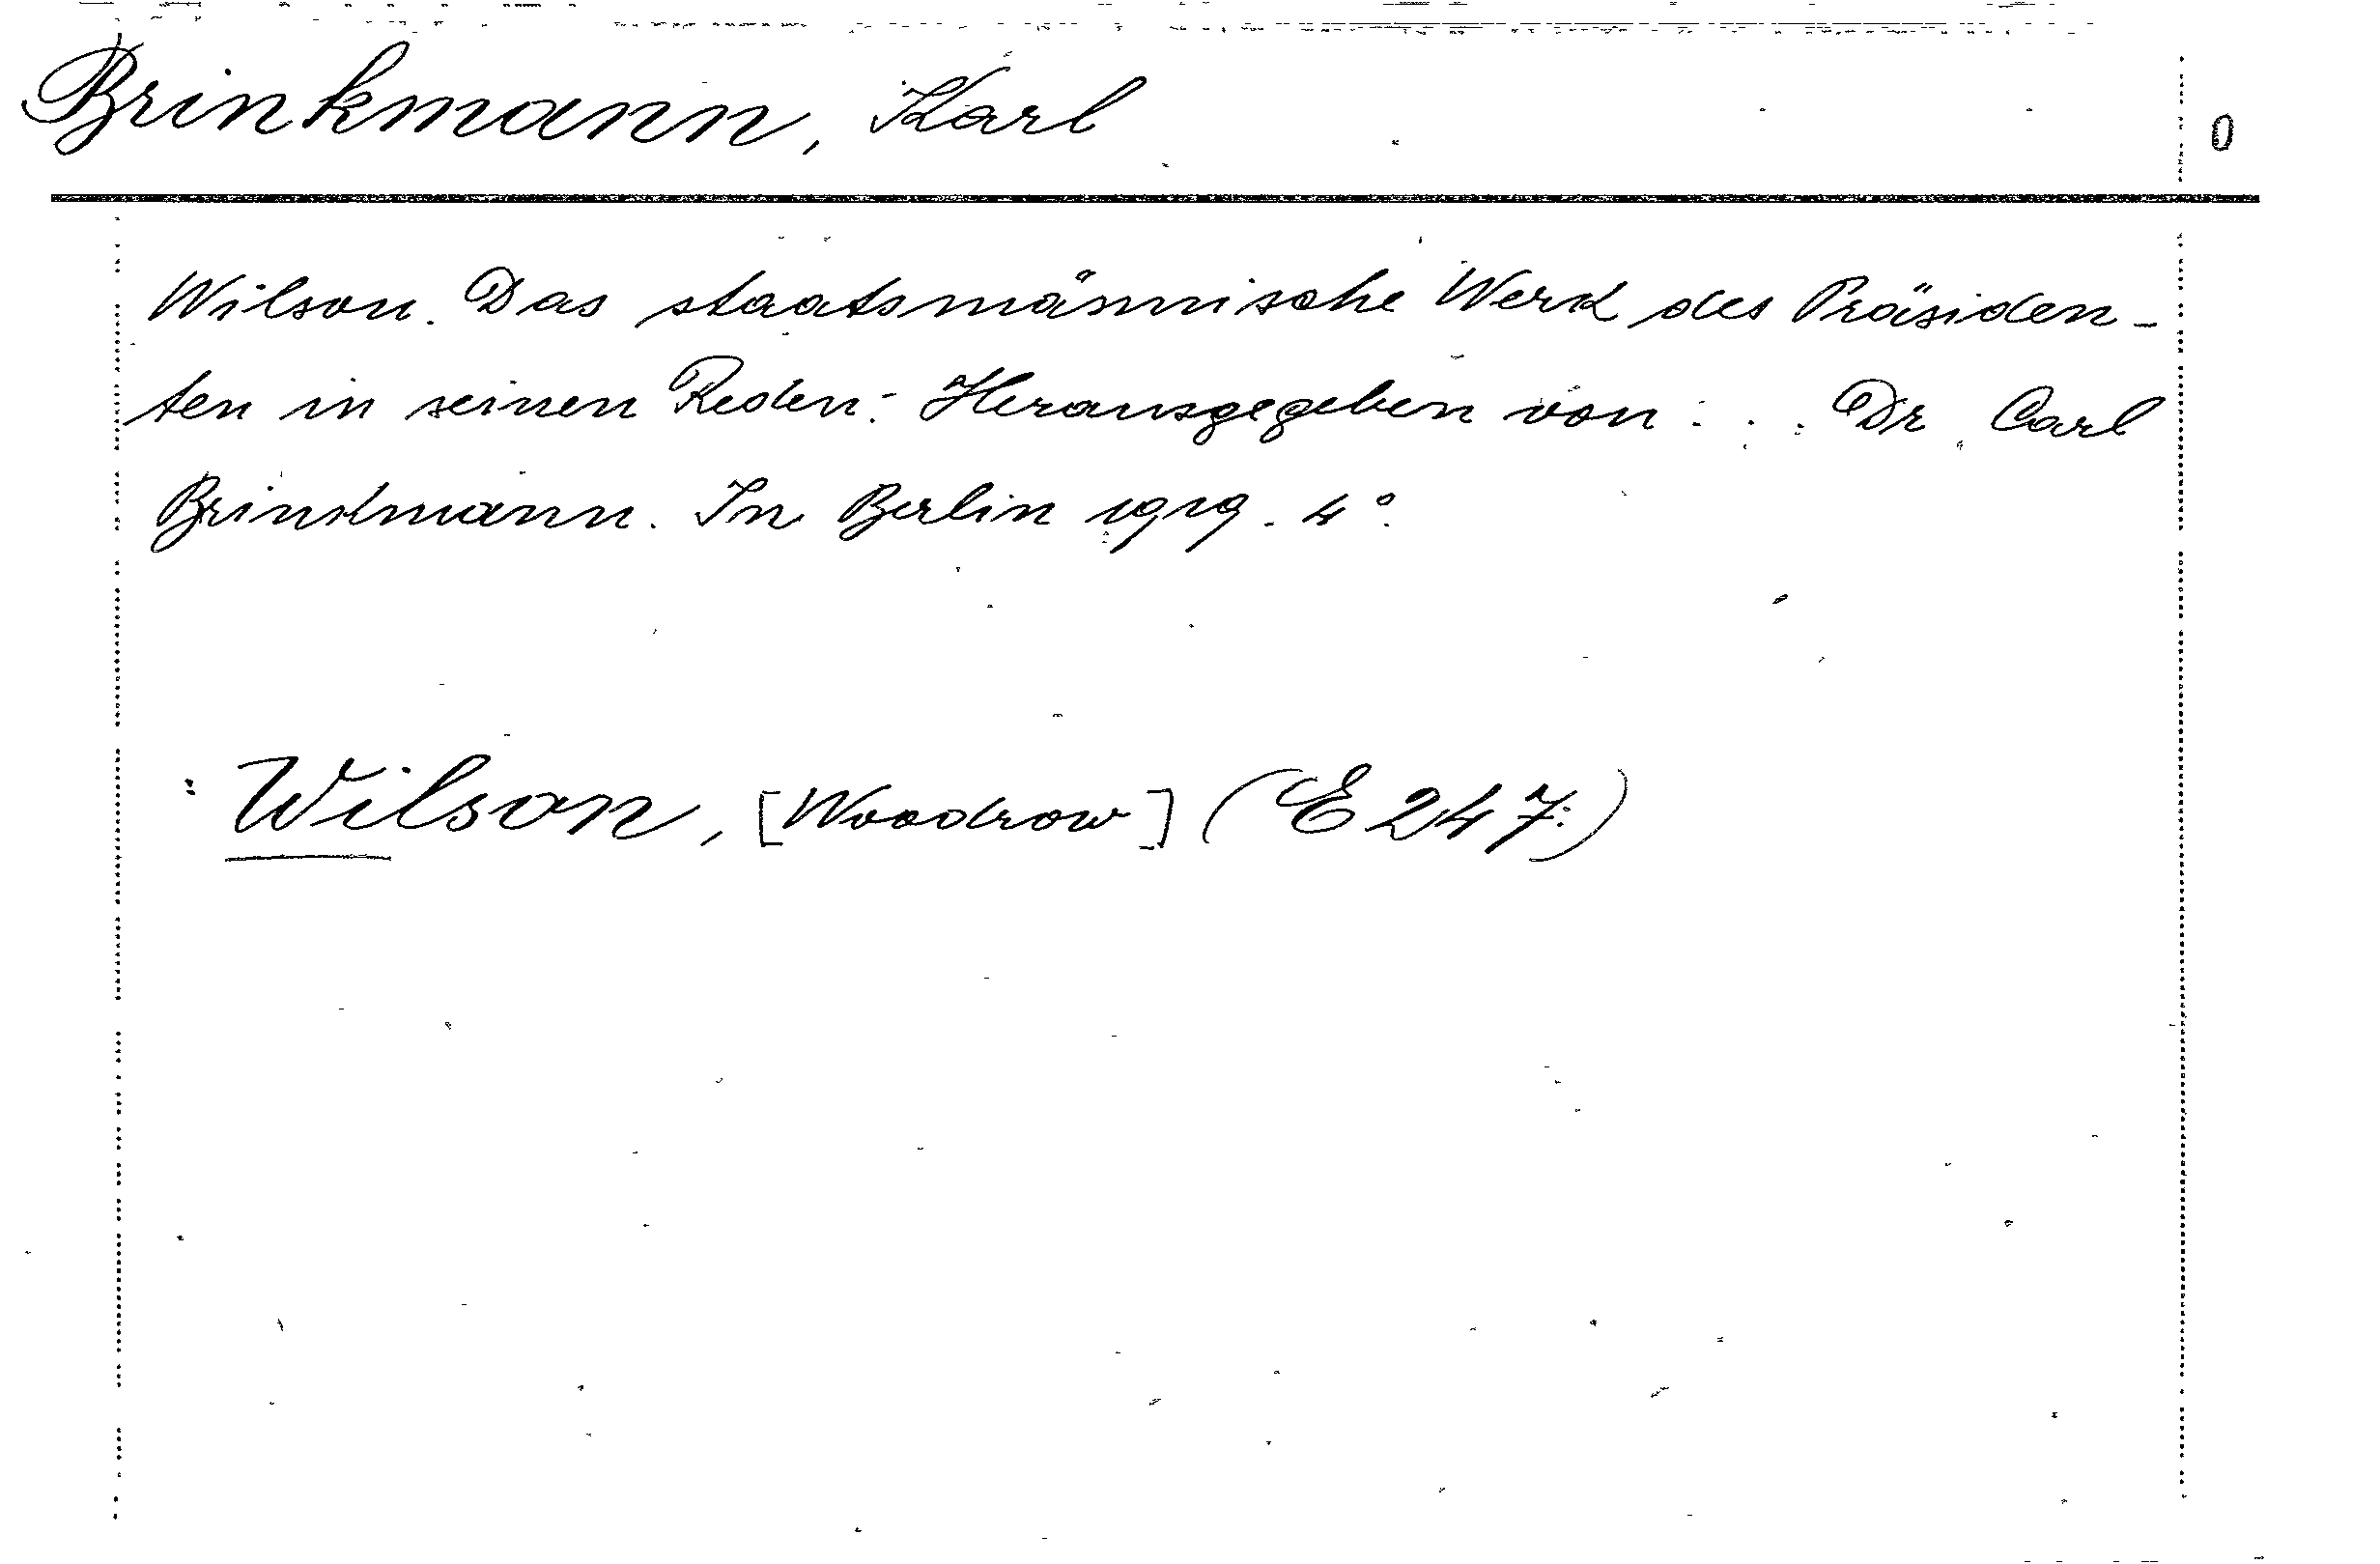 Brinkmann, Karl
0
Wilson. Das staatsmännische Werk des Präsiden-
ten in seinen Reden. Herausgegeben von . . . Dr. Carl
Brinkmann. In Berlin 1919. 4°.
Wilson, [Woodrow] (E 247.)